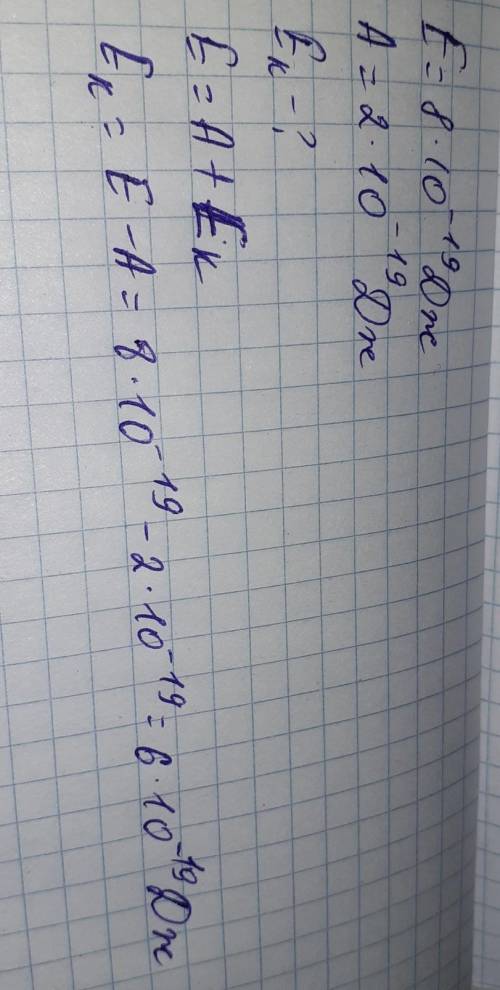 E = 8 · 10⁻¹⁹ Дж
A = 2 · 10⁻¹⁹ Дж
Eк - ?
E = A + Eк
Eк = E - A = 8 · 10⁻¹⁹ - 2 · 10⁻¹⁹ = 6 · 10⁻¹⁹ Дж